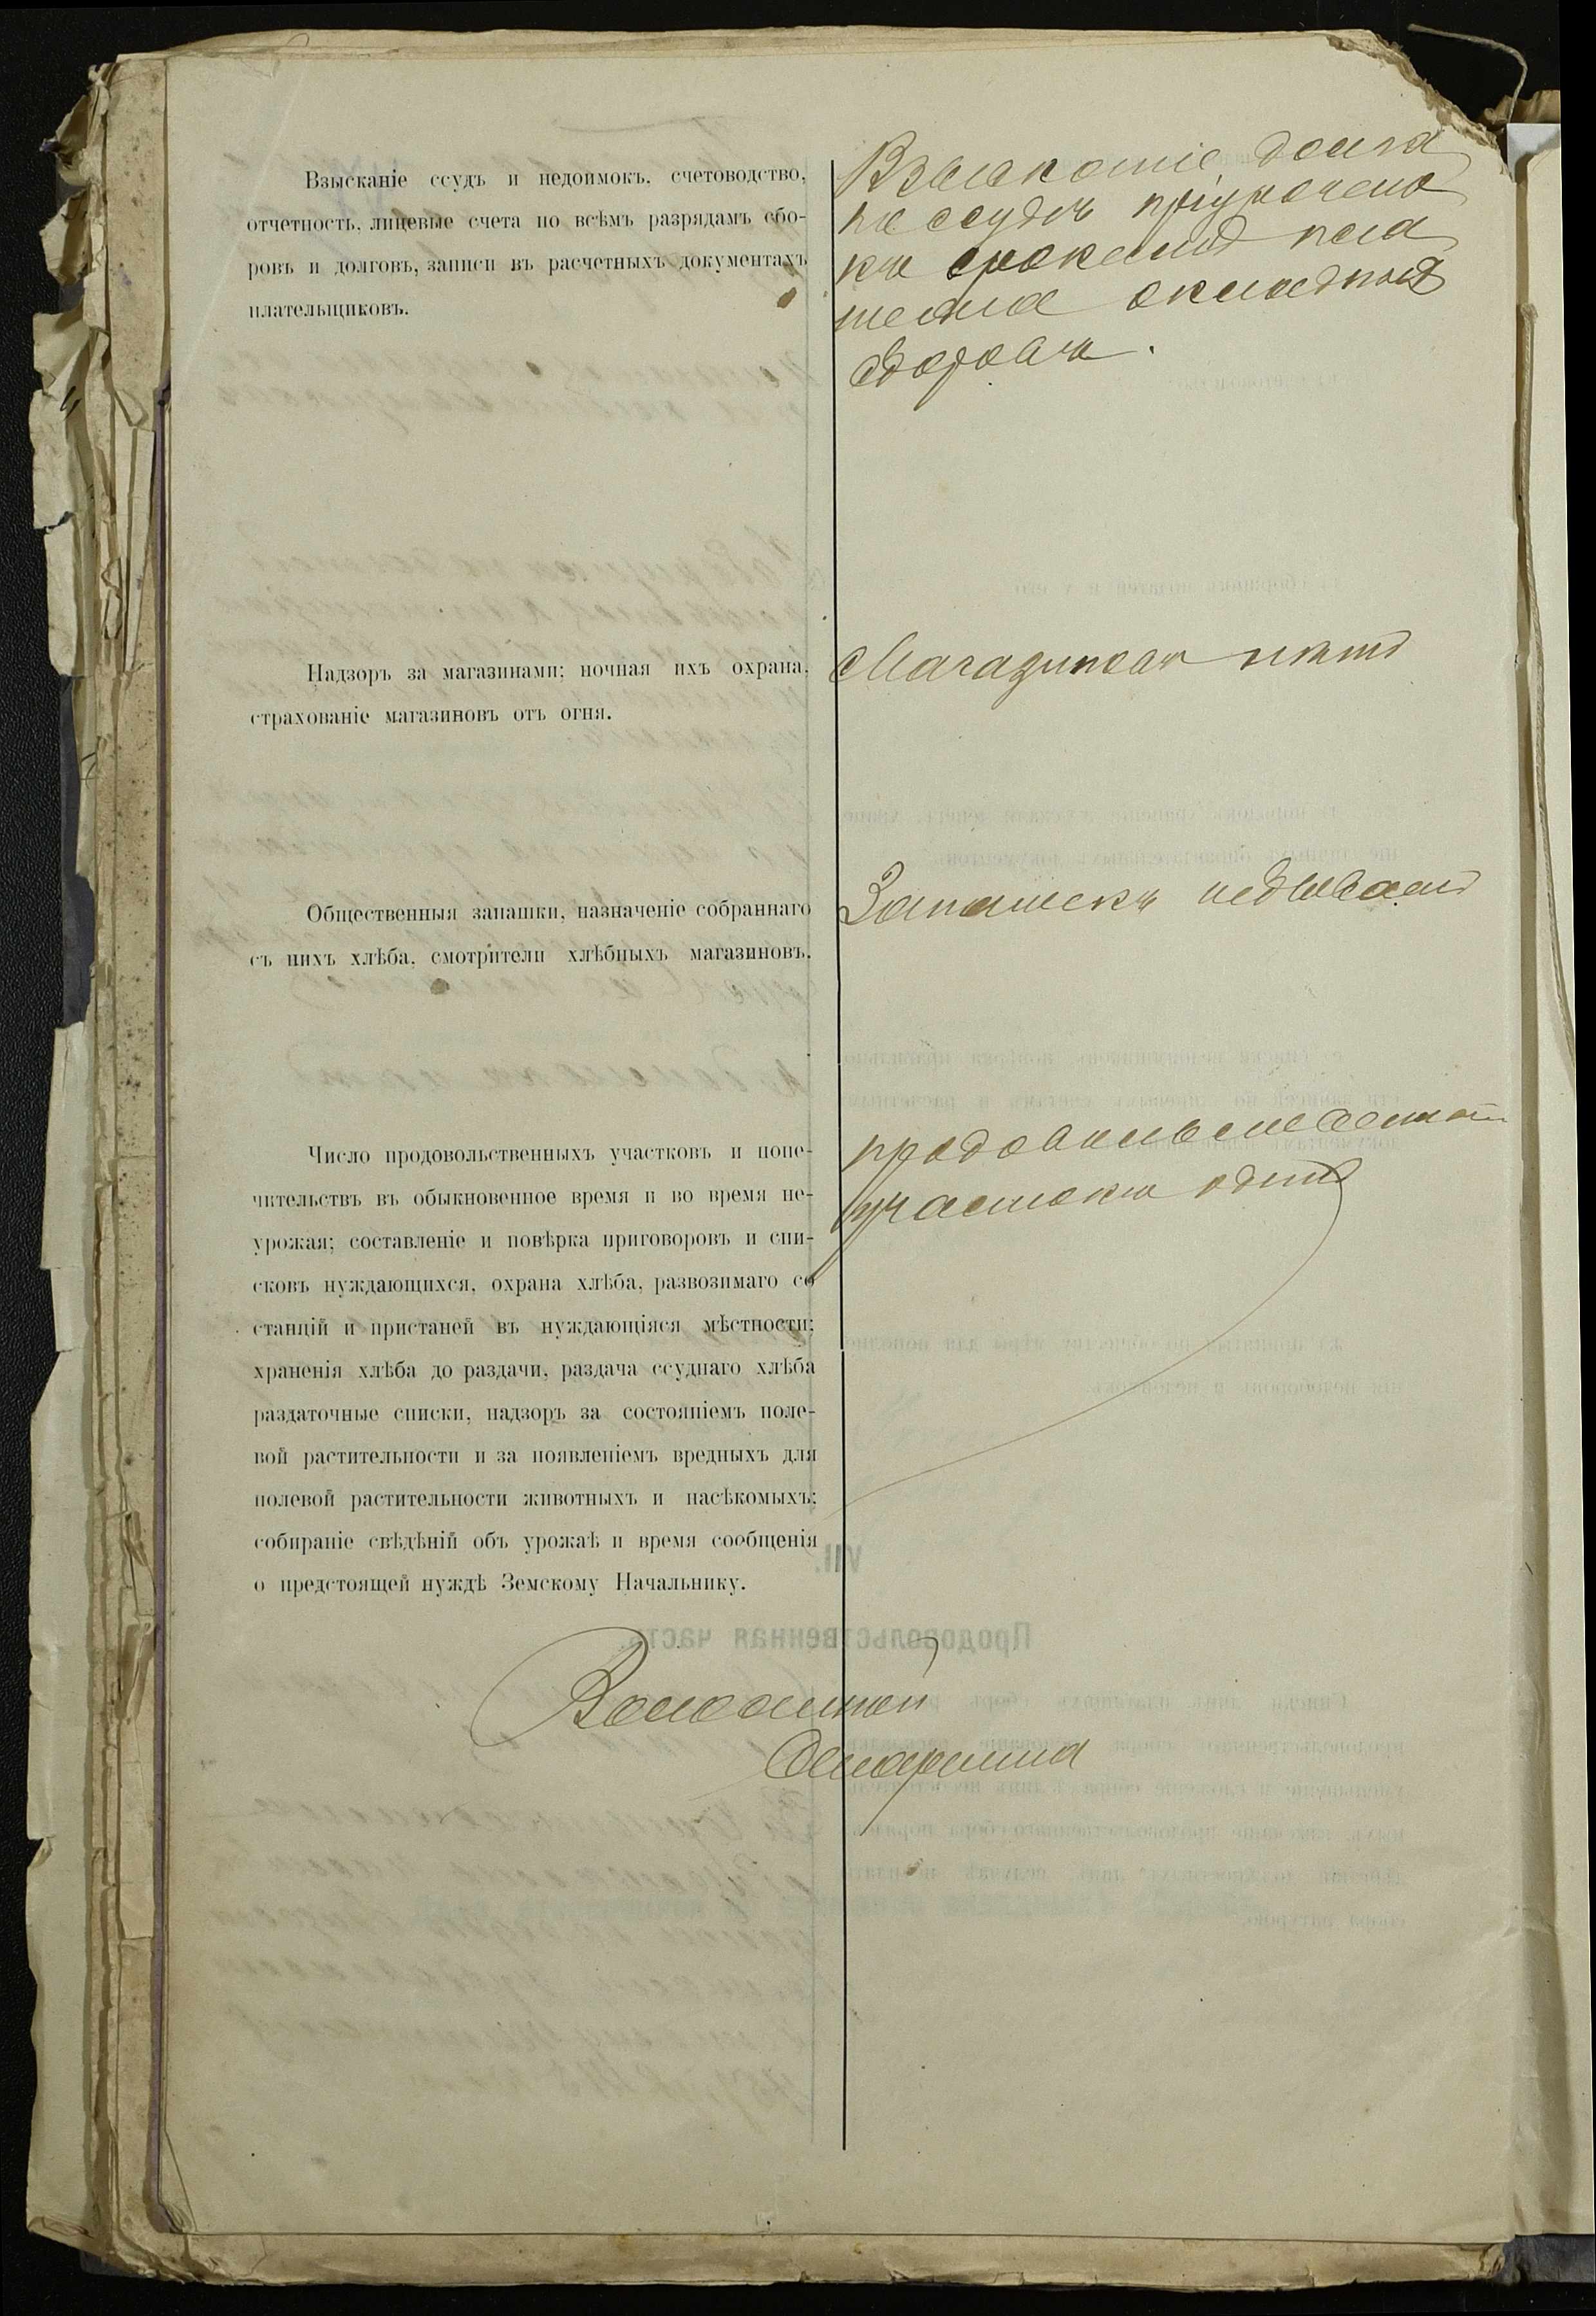 Взысканіе ссудъ и недоимокъ, счетоводство,
отчетность, лицевые счета по всѣмъ разрядамъ сбо-
ровъ и долговъ, записи въ расчетныхъ документахъ
плательщиковъ.
Взысканіе долга
по ссудѣ пріурочено
къ срокамъ пла
тежа окладныхъ
сборовъ.
Надзоръ за магазинами; ночная ихъ охрана,
страхованіе магазиновъ отъ огня.
Магазиновъ нѣтъ
Общественныя запашки, назначеніе собраннаго
съ нихъ хлѣба, смотрители хлѣбныхъ магазиновъ.
Запашекъ небываетъ
Число продовольственныхъ участковъ и попе-
чительствъ въ обыкновенное время и во время не-
урожая; составленіе и повѣрка приговоровъ и спи-
сковъ нуждающихся, охрана хлѣба, развозимаго со
станцій и пристаней въ нуждающіяся мѣстности;
храненія хлѣба до раздачи, раздача ссуднаго хлѣба
раздаточные списки, надзоръ за состояніемъ поле-
вой растительности и за появленіемъ вредныхъ для
полевой растительности животныхъ и насѣкомыхъ;
собираніе свѣдѣній объ урожаѣ и время сообщенія
о предстоящей нуждѣ Земскому Начальнику.
участокъ одинъ
Волостной
Старшина